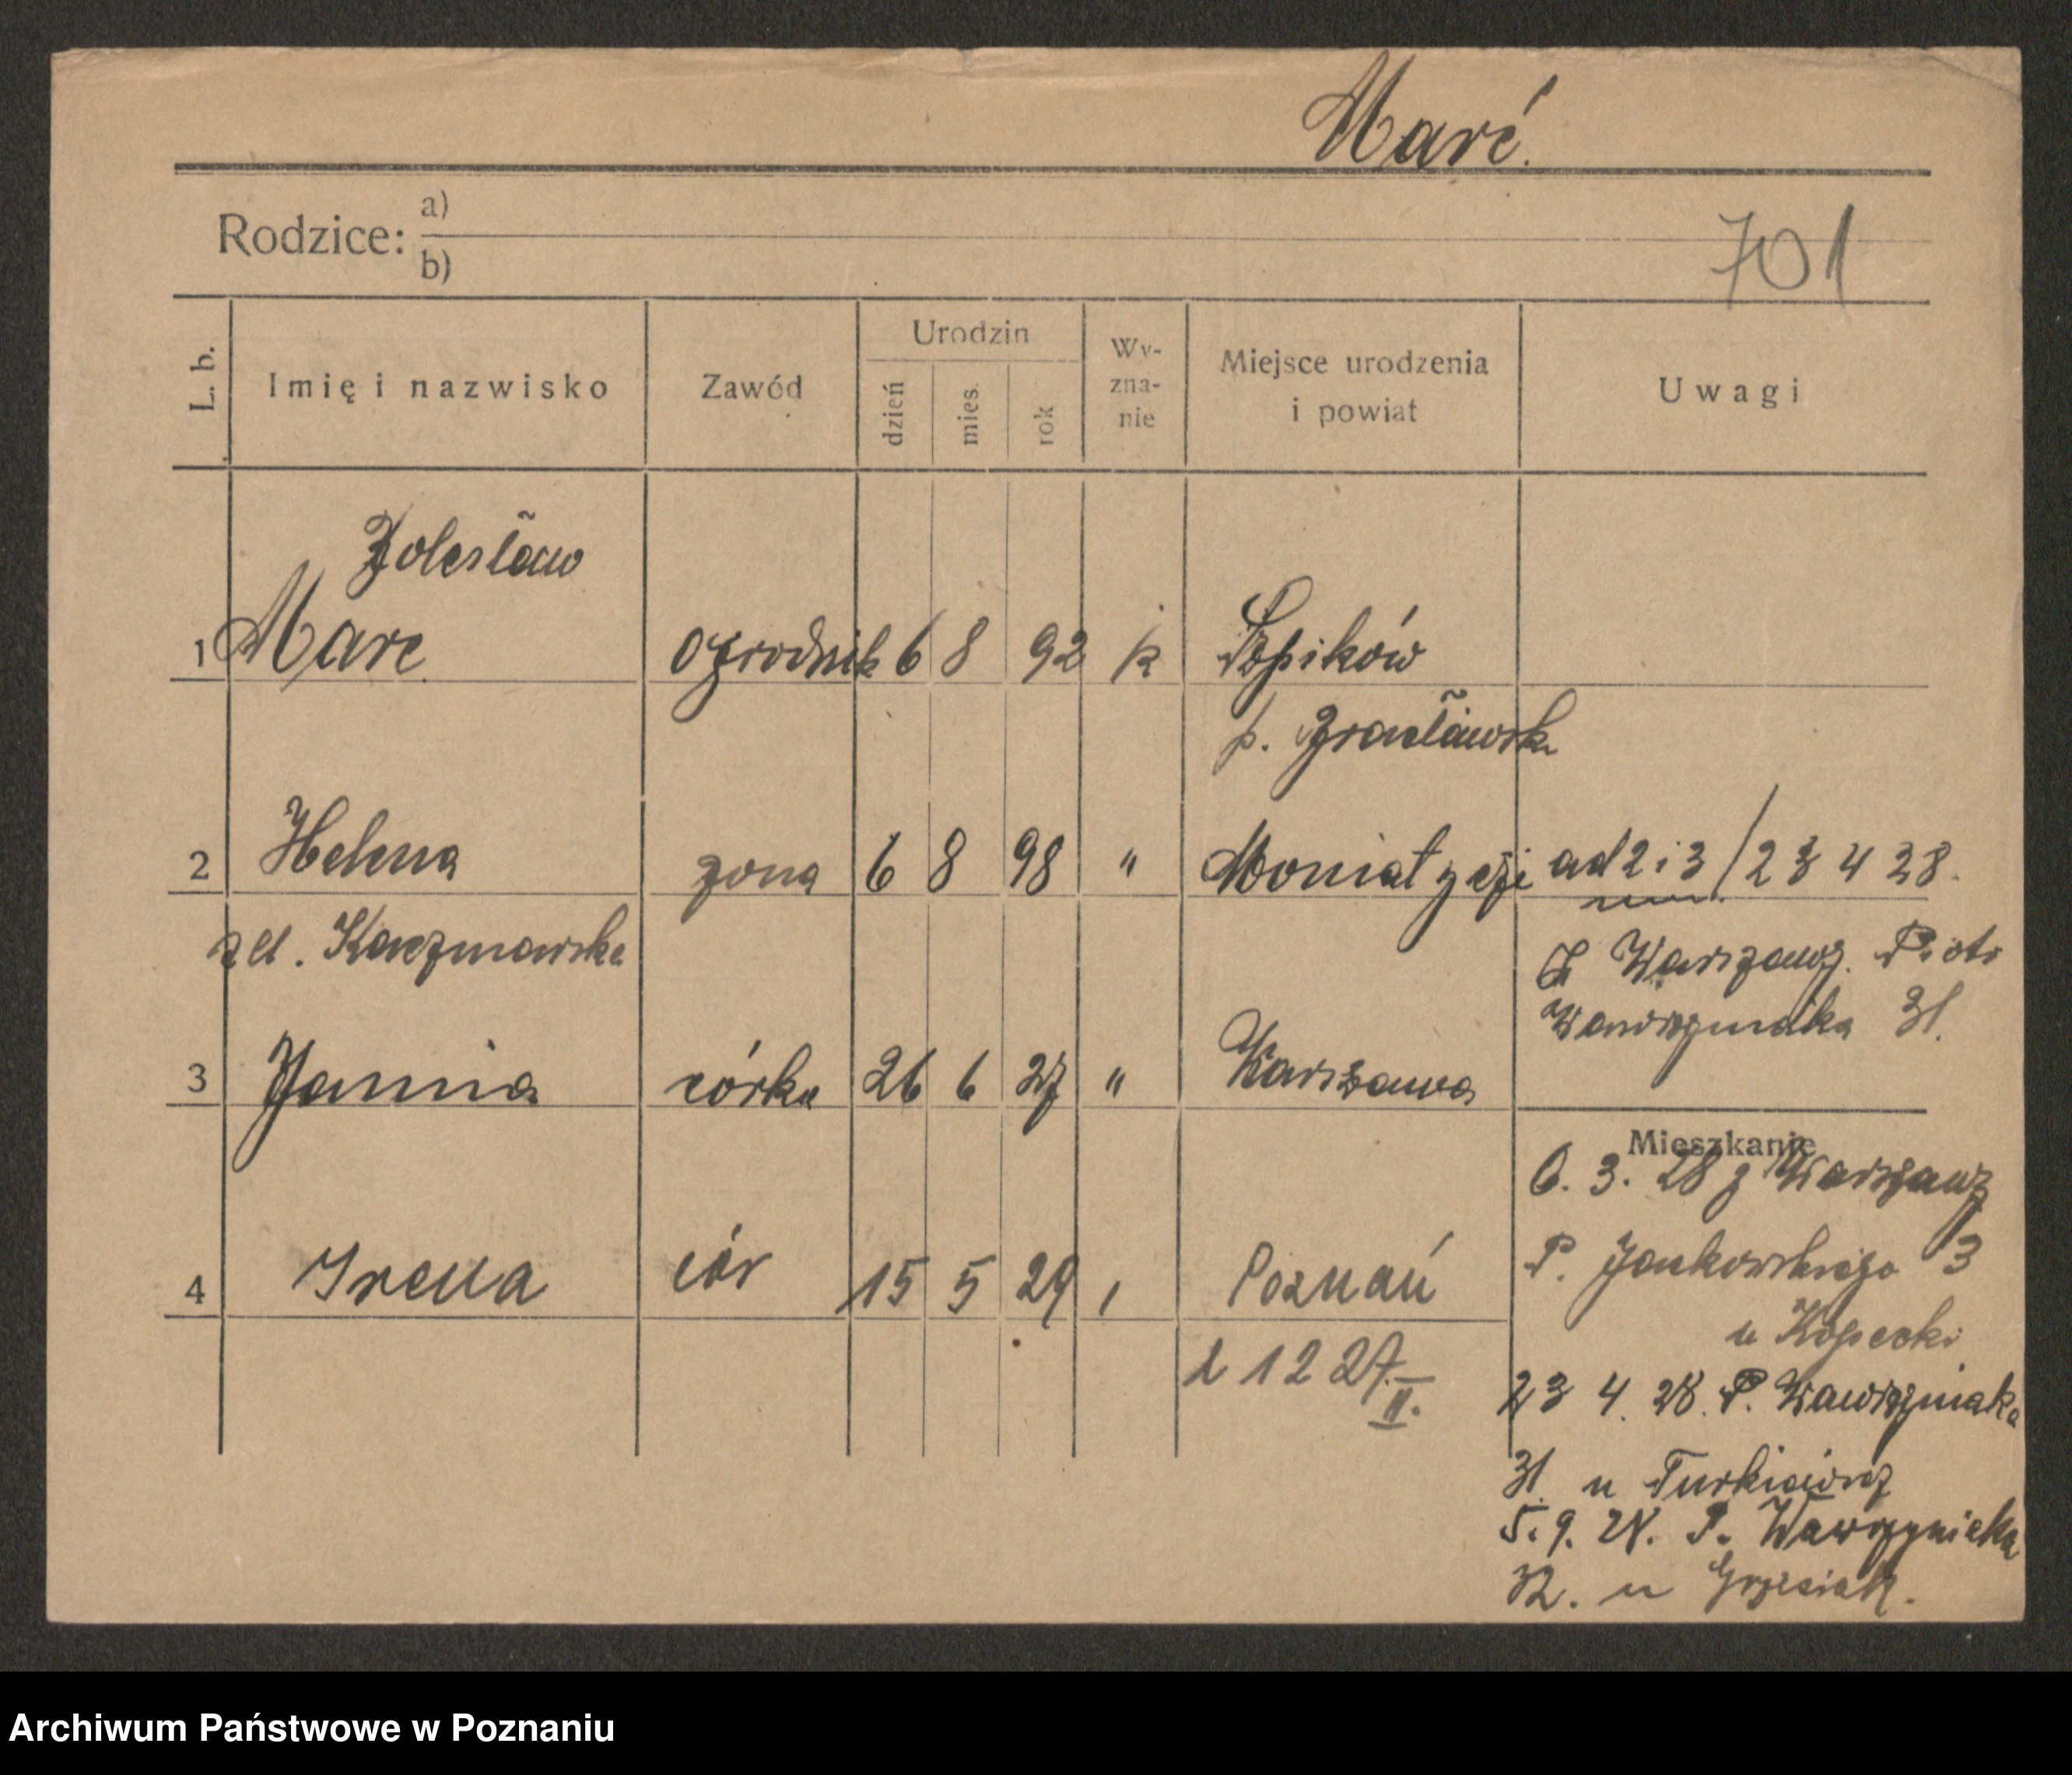 Maré.
Rodzice: a)
b)
701
L. b. Imię i nazwisko Zawód Urodzin dzień mies. rok Wy-zna-nie Miejsce urodzenia i powiat Uwagi
Bolesław
1 Mare ogrodnik 6 8 92 k Szpików
p. Bracławsk
2 Helena żona 6 8 98 " Moniatycze ad 2 i 3 / 23 4 28.
zd. Kaczmarska
Z Warszawy. Piotr
Wawrzyniaka 31.
3 Janina córka 26 6 27 " Warszawa
Mieszkanie
6. 3. 28 z Warszawy
4 Irena cór 15 5 29 Poznań
P. Jackowskiego 3
u Kopecki
1 12 27.
II.
23 4. 28. P. Wawrzyniaka
31. u
5. 9. 28. P. Wawrzyniaka
32. u Grzesiak.
Archiwum Państwowe w Poznaniu